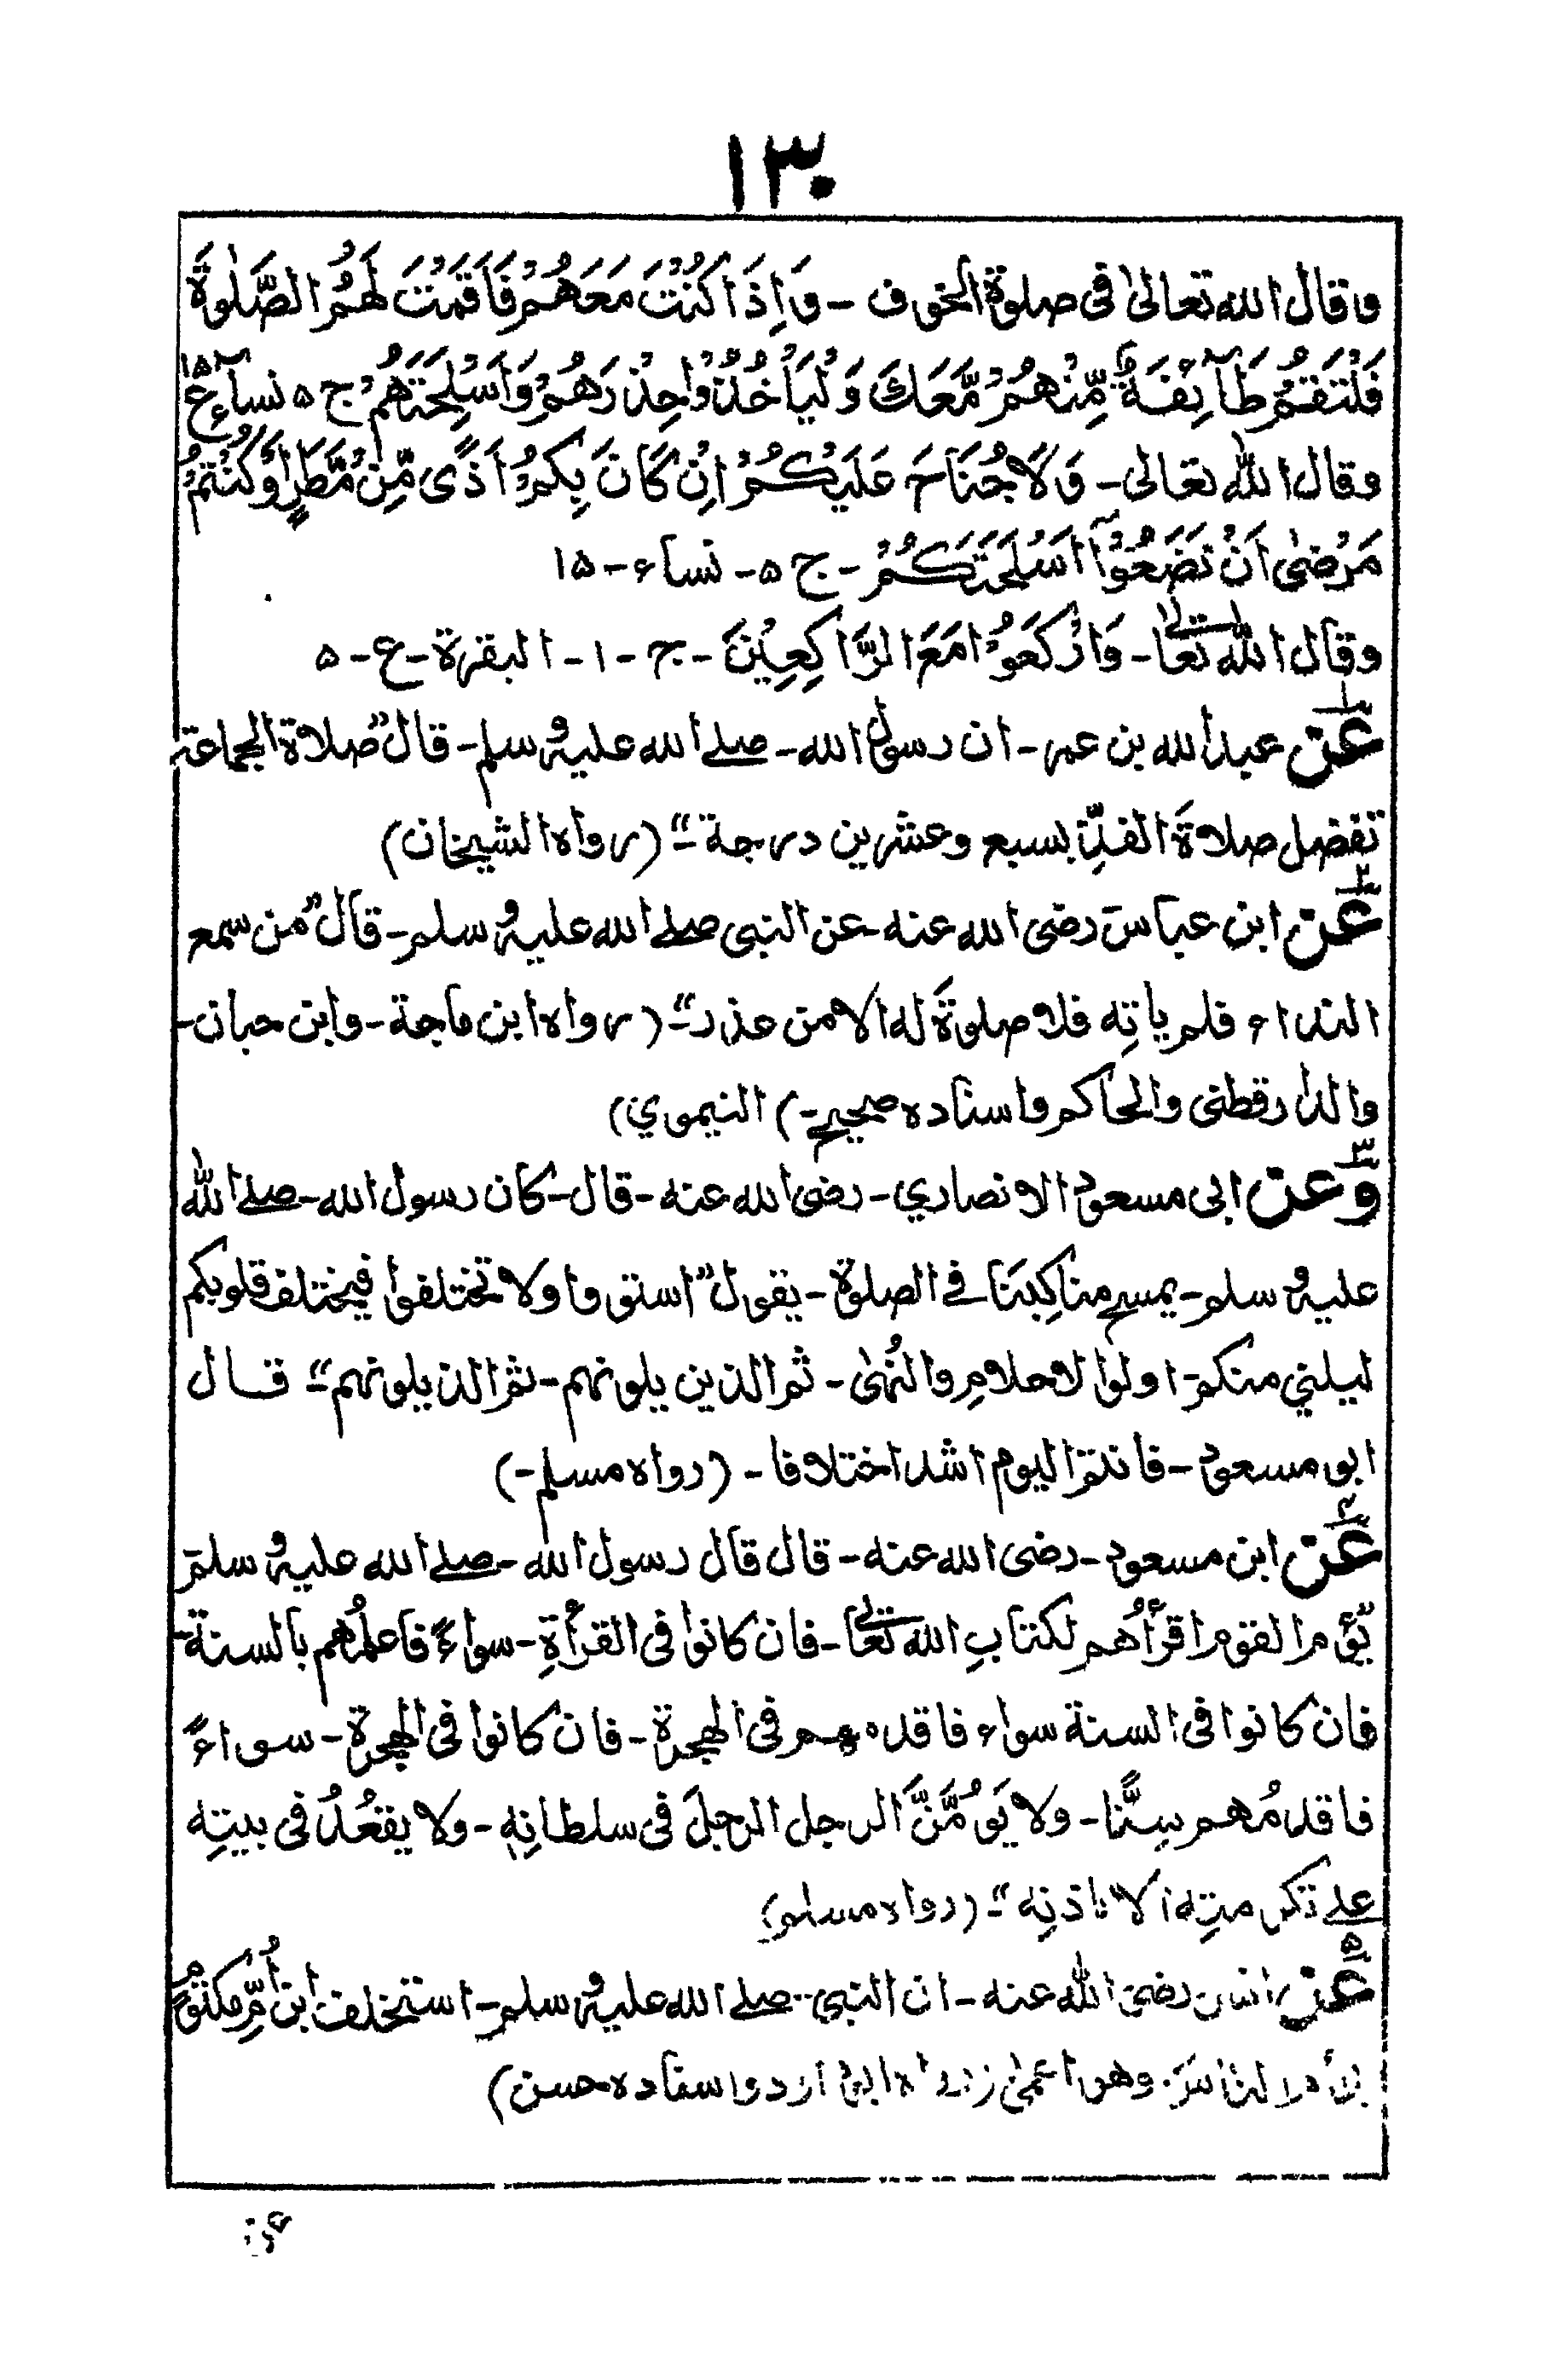 ١٣٠
وقال الله تعالىٰ فى صلوة الخوف - وَاِذَا كُنْتَ مَعَهُمْ فَاَقَمْتَ لَهُمُ الصَّلٰوةَ
فَلْتَقُمْ طَآئِفَةٌ مِّنْهُمْ مَّعَكَ وَلْيَأْخُذُوْا حِذْرَهُمْ وَاَسْلِحَتَهُمْ ج ۵ نساء ع ۱۵
وقال الله تعالى - وَلَا جُنَاحَ عَلَيْكُمْ اِنْ كَانَ بِكُمْ اَذًى مِّنْ مَّطَرٍ اَوْ كُنْتُمْ
مَرْضىٰ اَنْ تَضَعُوْٓا اَسْلِحَتَكُمْ - ج ۵ - نساء - ۱۵
وقال الله تعالىٰ - وَارْكَعُوْا مَعَ الرَّاكِعِيْنَ - ج - ۱ - البقرة - ع - ۵
۱ عَن عبد الله بن عمر - ان رسول الله - صلے الله عليه وسلم - قال "صلاة الجماعة
تفضل صلاةَ الفذِّ بسبع وعشرين درجة" - (رواه الشيخان)
۲ عَن ابن عباس رضى الله عنه - عن النبى صلے الله عليه وسلم - قال "من سمع
النداء فلم ياتِه فلا صلوةَ له الا من عذر" - (رواه ابن ماجة - وابن حبان -
والدارقطنى والحاكم واسناده صحيح -) النيموي)
۳ وَّعن ابى مسعود الانصاري - رضى الله عنه - قال - كان رسول الله - صلے الله
عليه وسلم - يمسح مناكِبَنا فے الصلوة - يقول "استووا ولا تختلفوا فيختلف قلوبكم
ليلني منكم - اولوا الاحلامِ والنُهىٰ - ثم الذين يلونهم - ثم الذ يلونهم" - قال
ابو مسعود - فانتم اليوم اشد اختلافا - (رواه مسلم -)
۴ عَن ابن مسعود - رضى الله عنه - قال قال رسول الله - صلے الله عليه وسلم
يؤم القوم اقرأُهم لكتابِ الله تعالىٰ - فان كانوا فى القرأةِ - سواءً فاعلمُهم بالسنة -
فان كانوا فى السنة سواء فاقدمهم فى الهجرة - فان كانوا فى الهجرة - سواءً
فاقدمُهم سِنًّا - ولا يَؤُمَّنَّ الرجل الرجلَ فى سلطانِه - ولا يقعُدُ فى بيتِه
علے تكرمتِه الا باذنِه" - (رواه مسلم)
۵ عَن انس رضى الله عنه - ان النبى - صلے الله عليه وسلم - استخلف ابن اُمِّ مكتومٍ
الناس - وهو اعمىٰ واسناده حسن)